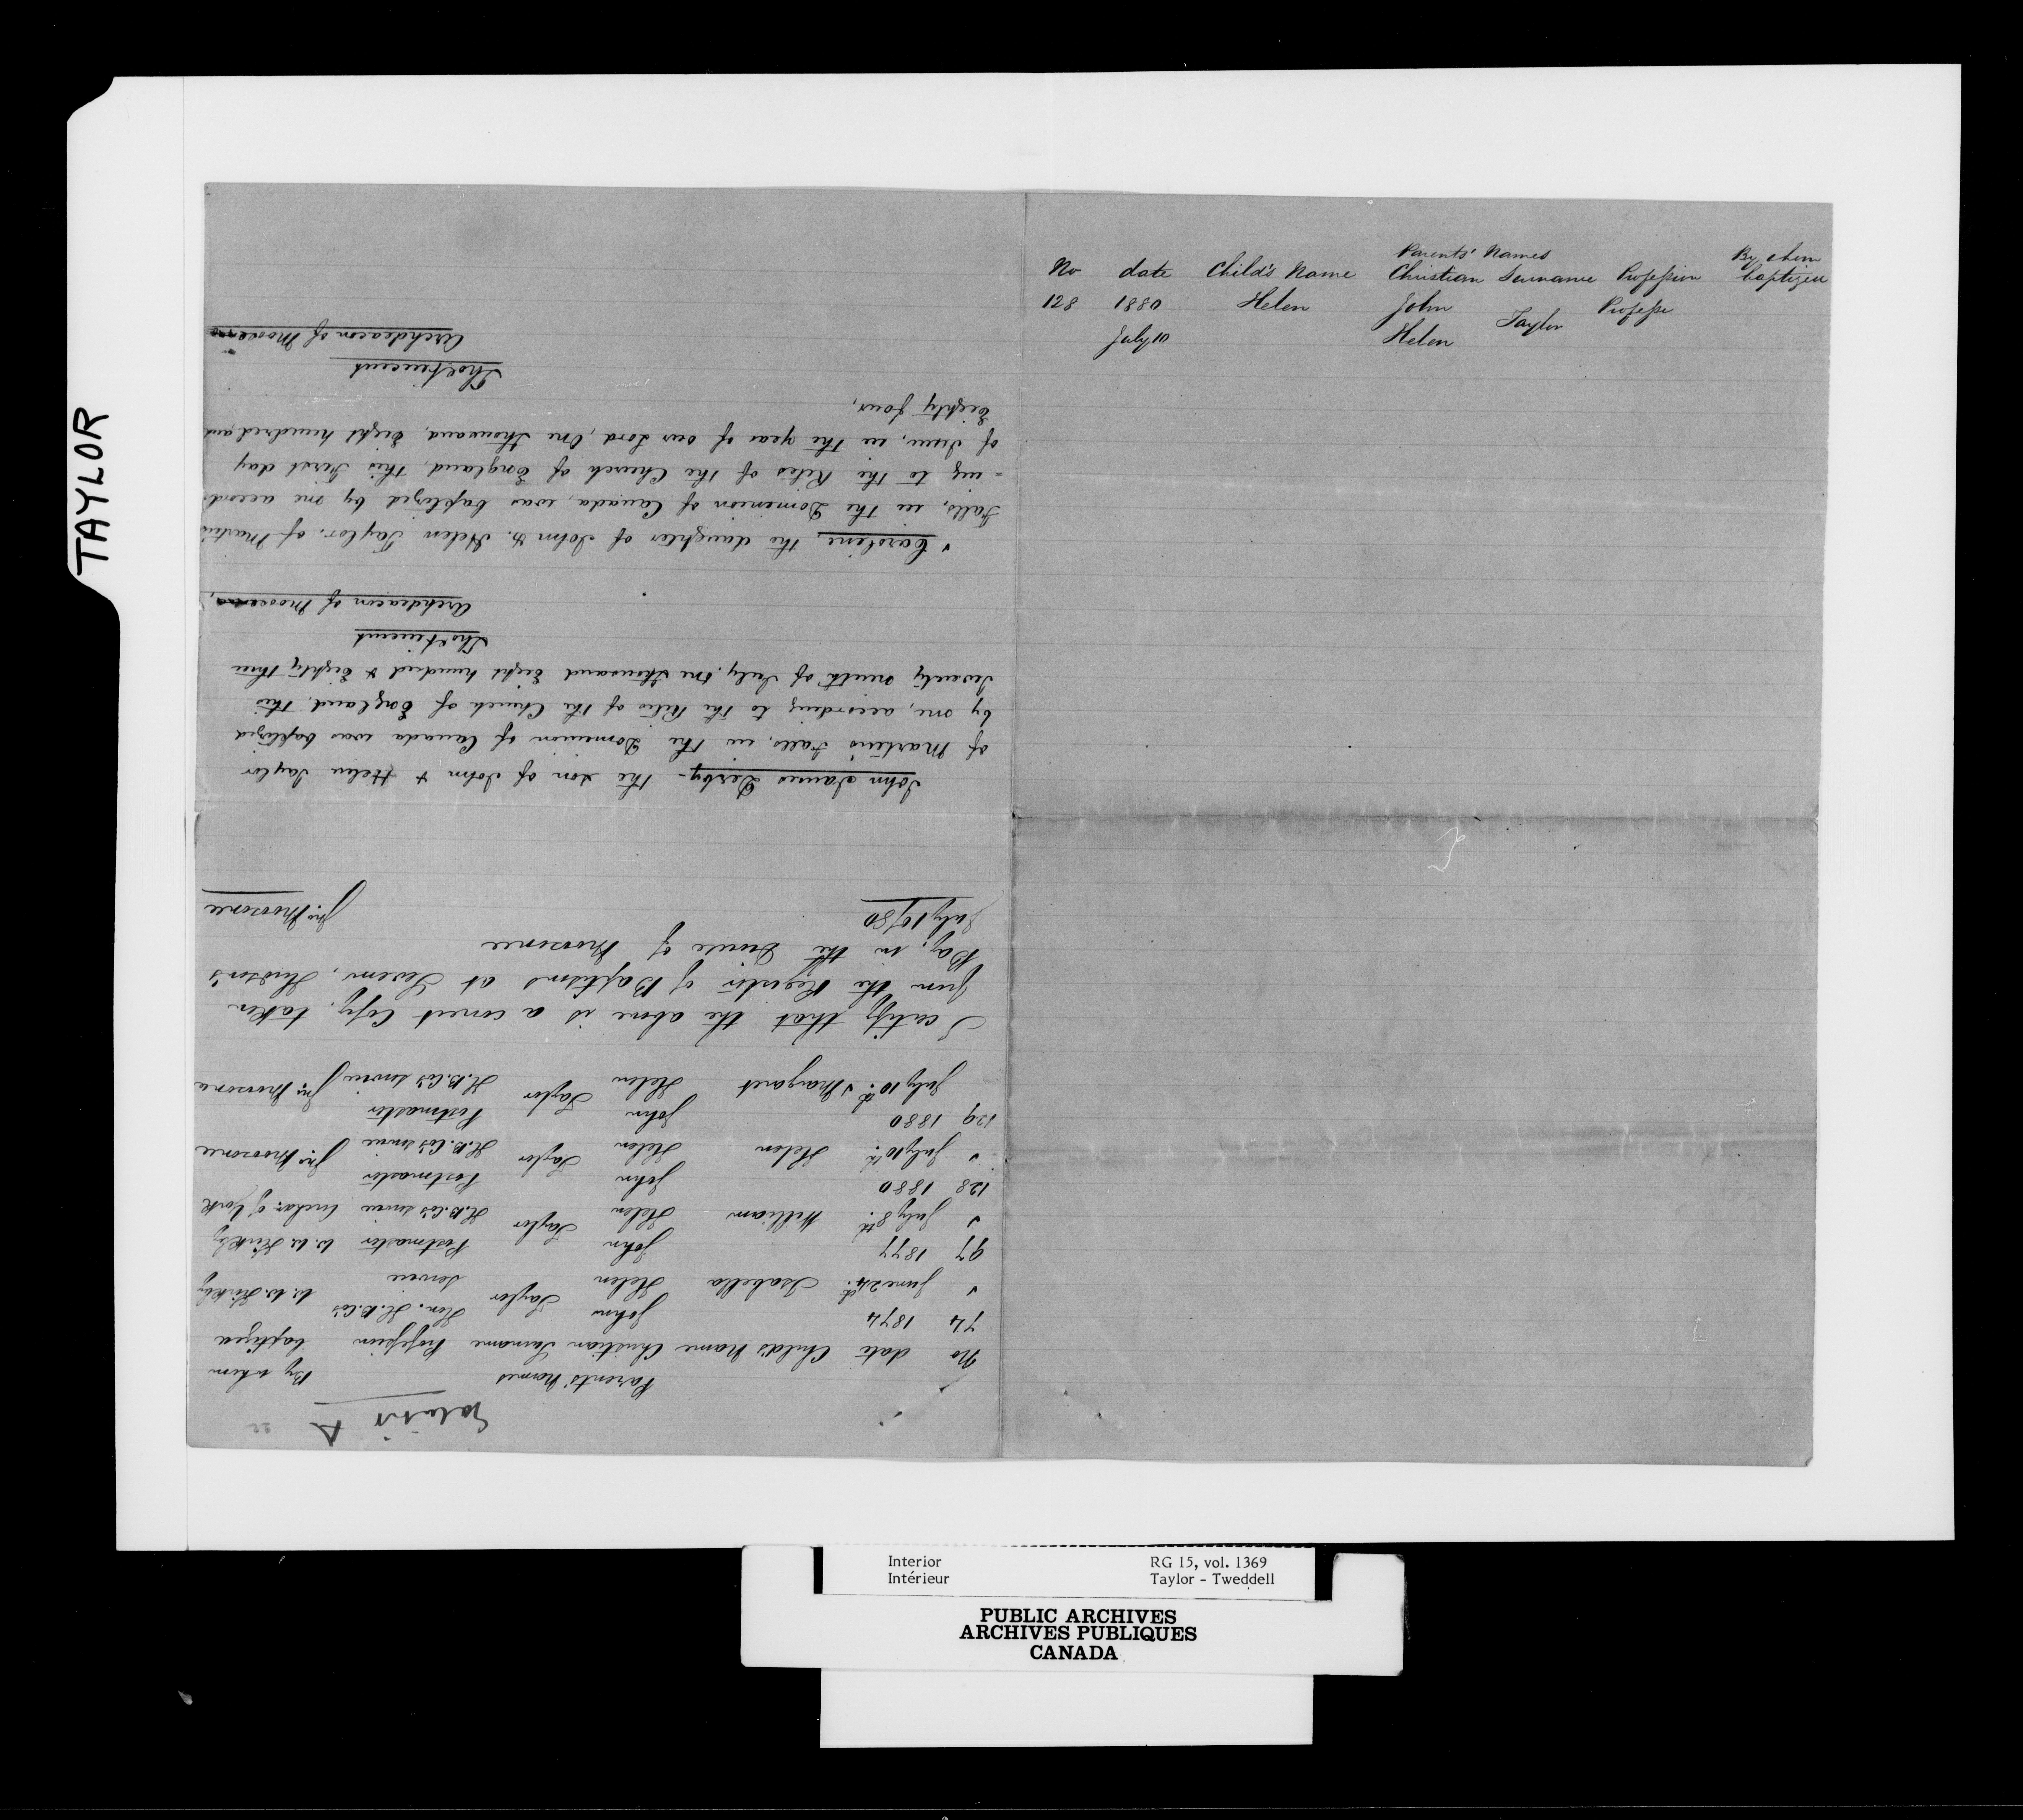 TAYLOR
Parents' Names By whom
No date Child's Name Christian Surname Profession baptized
128 1880 Helen John Taylor Professi
July 10 Helen
Exhibit A
22
Parents' Names By whom
No date Child's Name Christian Surname Profession baptized
74 1874 John H.B.Co's
June 24th Isabella Helen Taylor service W. W. Kirkby
97 1877 John Postmaster W. W. Kirkby
July 8th William Helen Taylor H.B.Co's service Archdn of York
128 1880 John Postmaster
July 10th Helen Helen Taylor H.B.Co's service Jno Moosonee
129 1880 John Postmaster
July 10th Margaret Helen Taylor H.B.Co's service Jno Moosonee
I certify that the above is a correct Copy, taken
from the Register of Baptisms at Severn, Hudson's
Bay, in the Diocese of Moosonee
July 10/80 Jno Moosonee
John James Derby - the son of John & Helen Taylor
of Martins Falls, in the Dominion of Canada was baptized
by me, according to the Rites of the Church of England, this
Twenty ninth of July, One thousand Eight hundred & Eighty three
Thos Vincent
Archdeacon of Moosonee
Caroline, the daughter of John & Helen Taylor, of Martin's
Falls, in the Dominion of Canada, was baptized by me accord
-ing to the Rites of the Church of England, this First day
of June, in the year of our Lord, One thousand, Eight hundred, and
Eighty four,
Thos Vincent
Archdeacon of Moosonee
Interior RG 15, vol. 1369
Intérieur Taylor - Tweddell
PUBLIC ARCHIVES
ARCHIVES PUBLIQUES
CANADA